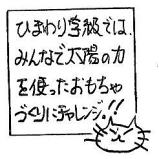 ひまわり学級では、
みんなで太陽の力
を使ったおもちゃ
づくりにチャレンジ!